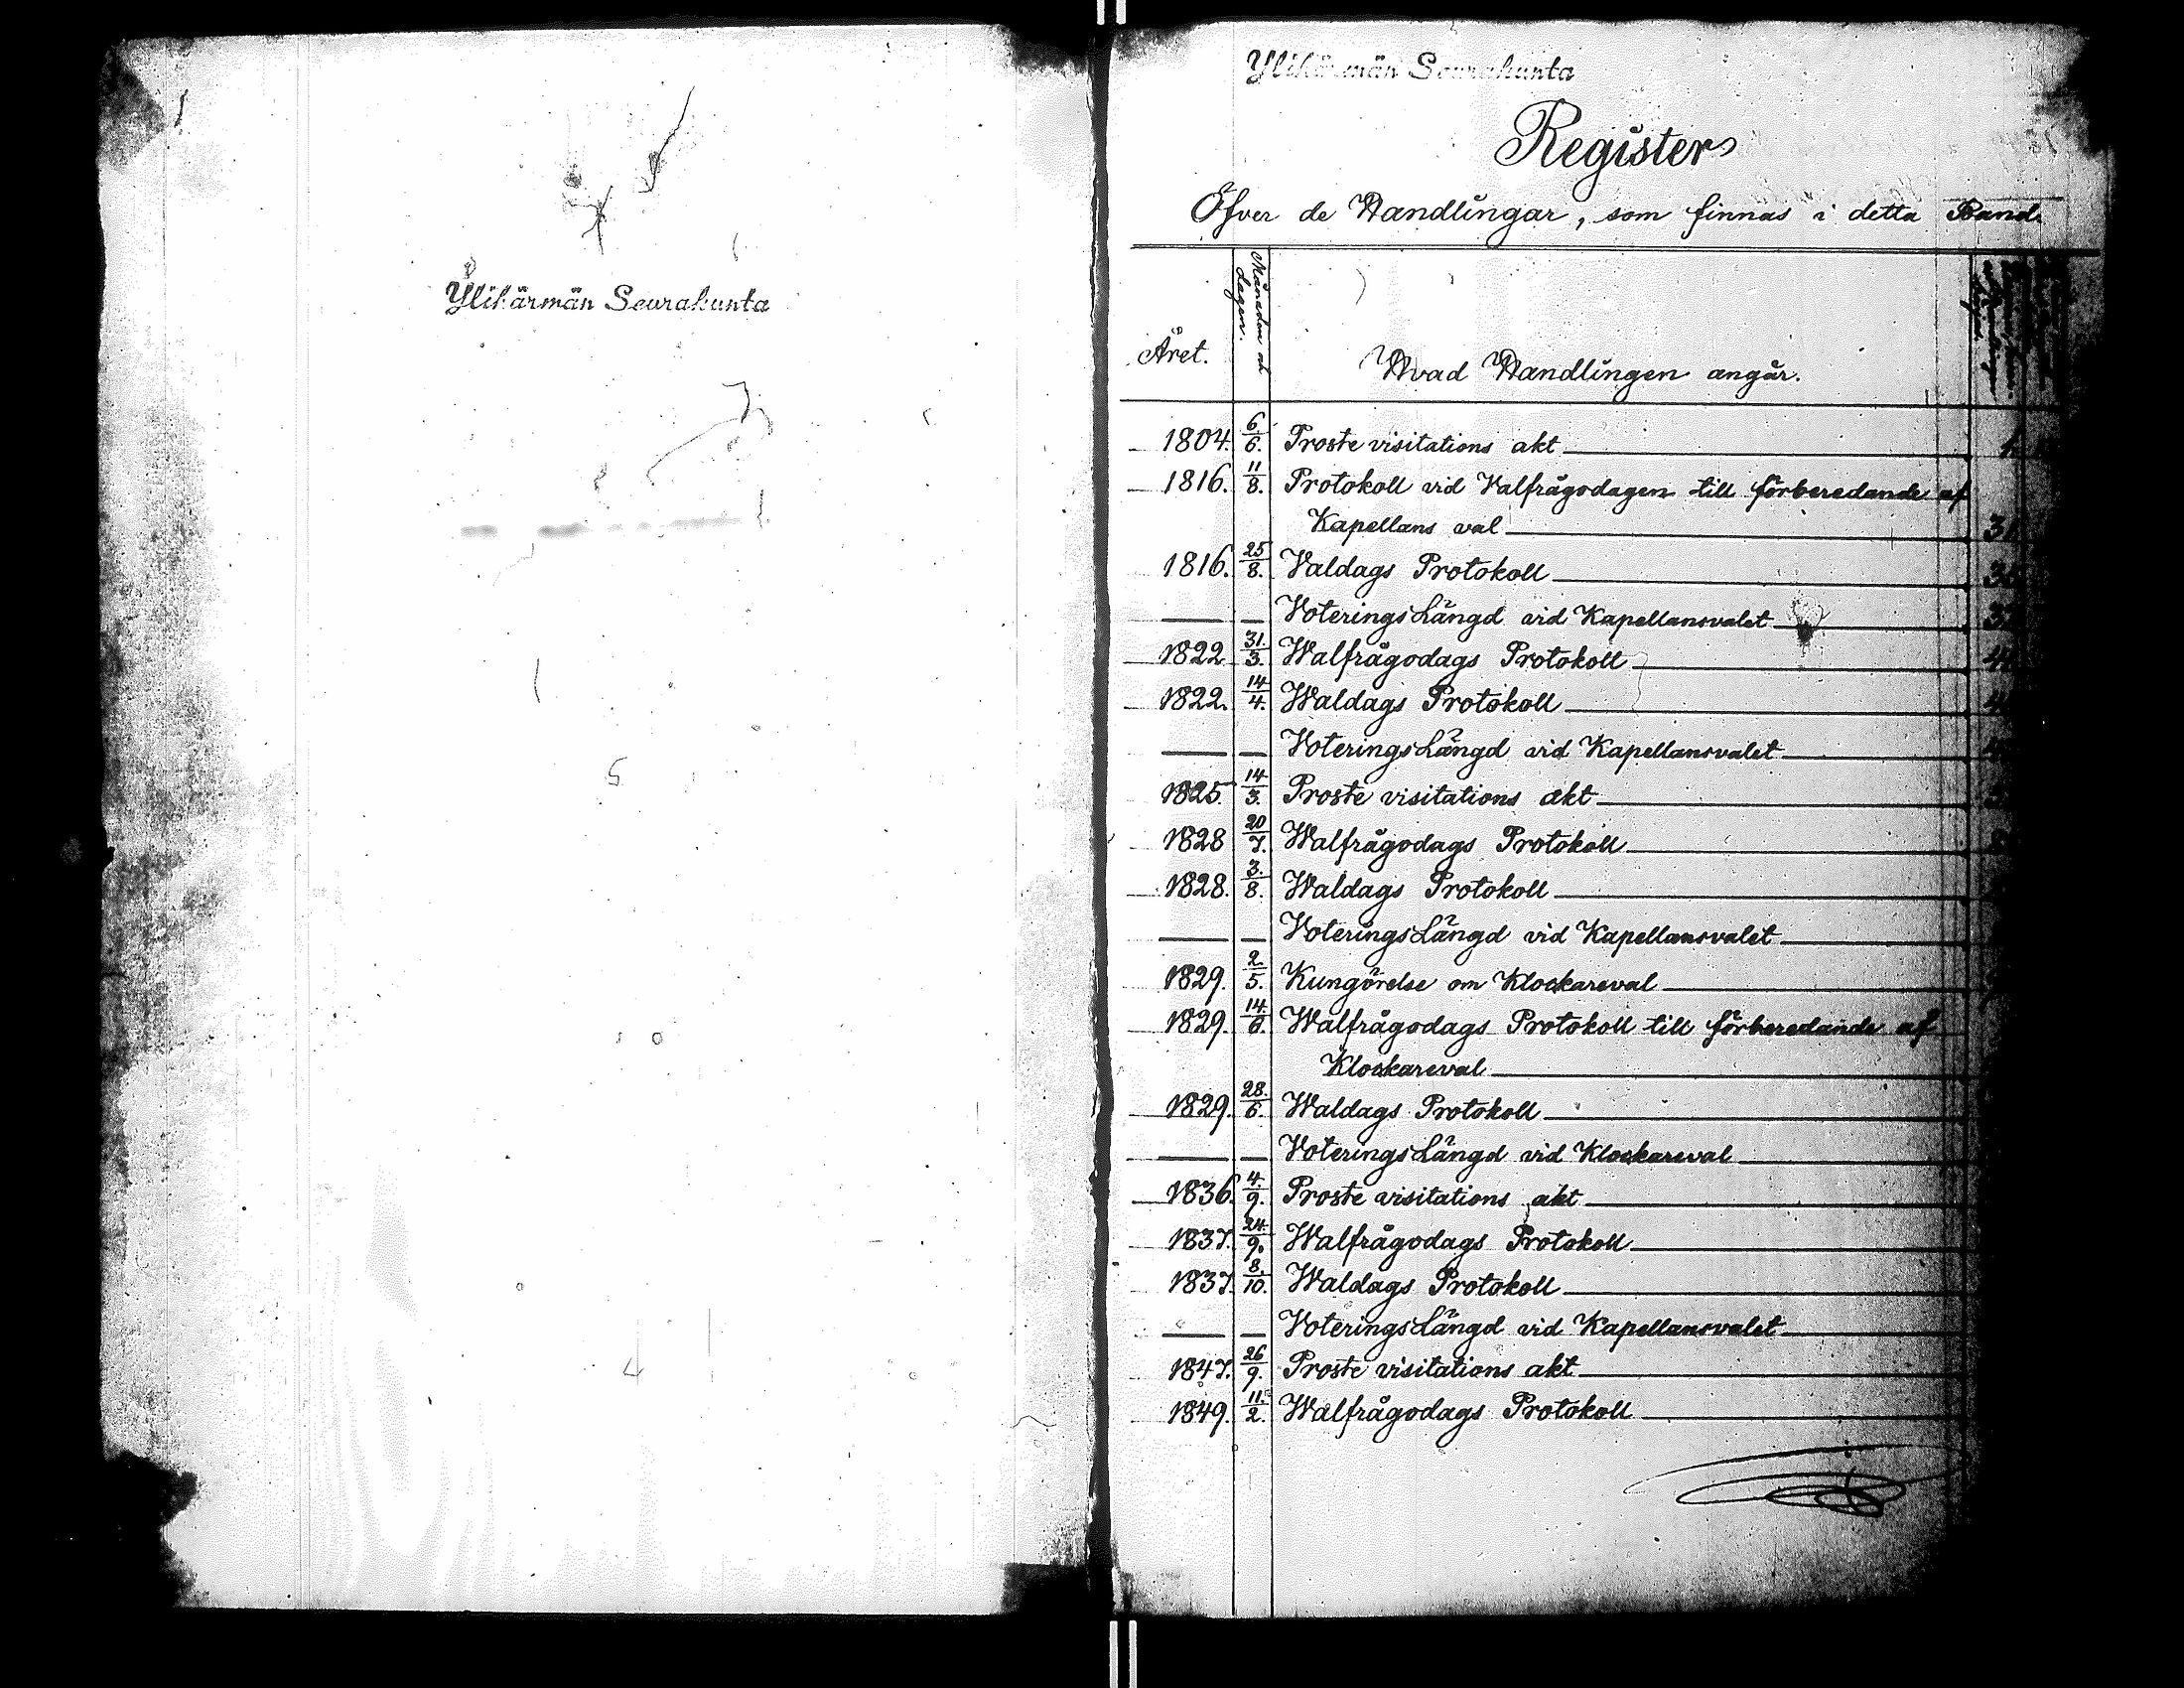 Ylikärmän Seurakunta
Ylikärmän Seurakunta
Register
Öfver de Handlingar, som finnas i detta Band.
Året.
Månaden och
dagen.
Hvad Handlingen angår.
1804. 6/6. Proste visitations akt 1.
1816. 11/8. Protokoll vid Valfrågodagen till förberedande af
Kapellans val 31
1816. 25/8. Valdags Protokoll
— — VoteringsLängd vid Kapellansvalet
1822 31./3. Walfrågodags Protokoll
1822. 14/4. Waldags Protokoll
— — VoteringsLängd vid Kapellansvalet
1825. 14/3. Proste visitations akt
1828 20/7. Walfrågodags Protokoll
1828. 3./8. Waldags Protokoll
— — VoteringsLängd vid Kapellansvalet
1829. 2/5. Kungörelse om Klockareval
1829. 14./6. Walfrågodags Protokoll till förberedande af
Klockareval
1829. 28./6. Waldags Protokoll
— — VoteringsLängd vid Klockareval
1836. 4./9. Proste visitations akt
1837. 24./9. Walfrågodags Protokoll
1837. 8./10. Waldags Protokoll
— — VoteringsLängd vid Kapellansvalet
1847. 26/9. Proste visitations akt
1849. 11./2. Walfrågodags Protokoll